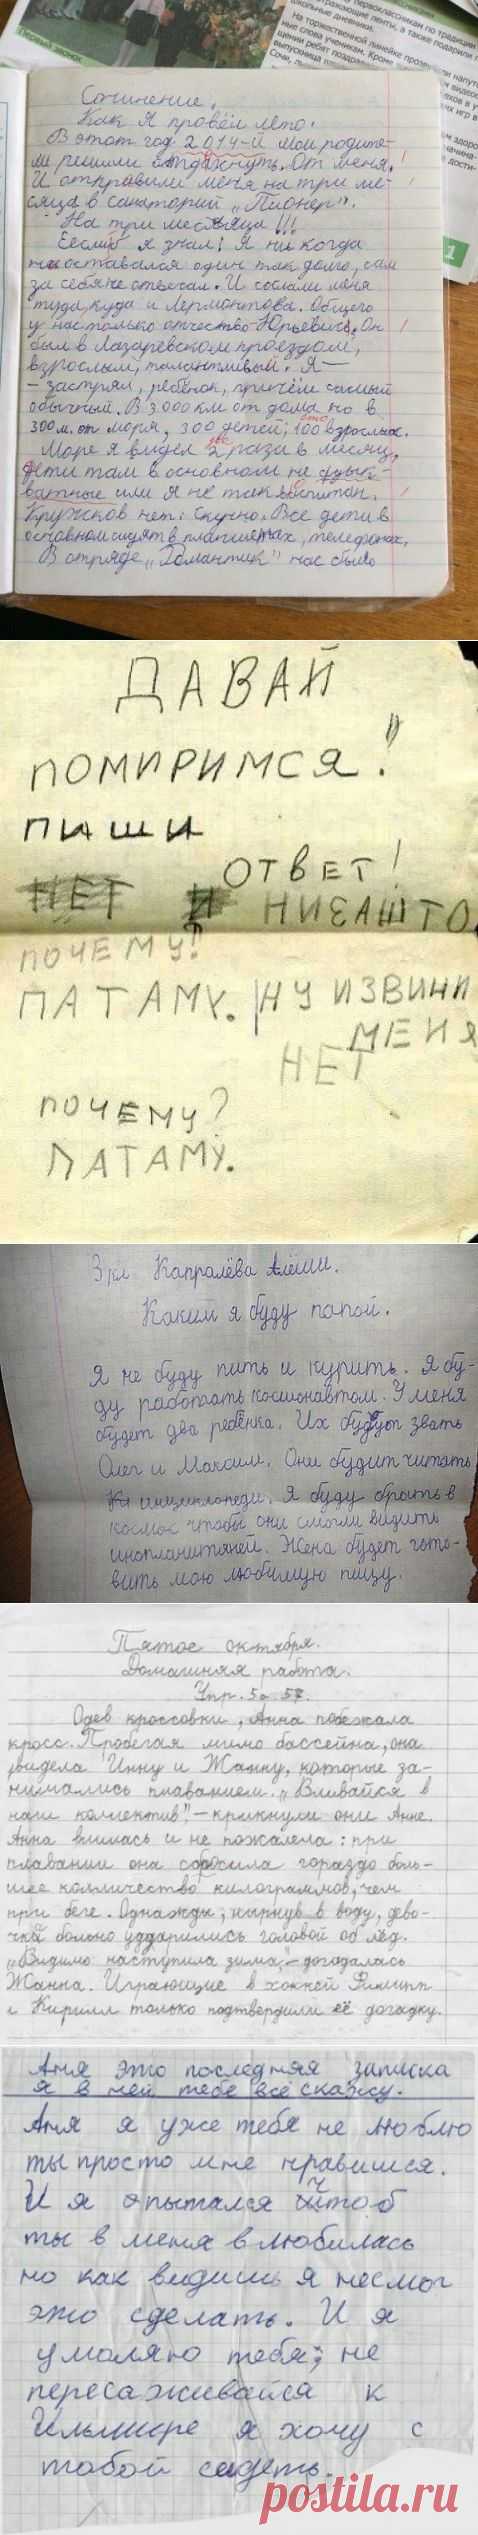 первоклассникам по традиции
ражающие ленты, а также подарили
школьные дневники.
На торжественной линейке прозвучали напутс
ные слова ученикам. Кроме
щении ребят поздрав
выпускница
Сочи,
1
Сочинение.
Как Я провёл лето.
В этот год 2014-й мои родите-
ли решили отдахнуть. От меня.
И отправили меня на три ме-
сяца в санаторий „Пионер".
На три месяца!!!
Еслиб я знал! Я ни когда
не оставался один так долго, сам
за себя не отвечал. И сослали меня
туда, куда и Лермонтова. Общего
у нас только отчество Юрьевич. Он
был в Лазаревском проездом,
взрослый, талантливый. Я —
– застрял, ребёнок, причём самый
обычный. В 3.000 км от дома но в
300 м. от моря, 300 детей, 100 взрослых.
Море я видел 2 раза в месяц,
дети там в основном не адык-
ватные или я не так воспитан.
Кружков нет. Скучно. Все дети в
основном сидят в планшетах, телефонах.
В отряде „Романтик" нас было
ДАВАЙ
ПОМИРИМСЯ!
ПИШИ
ОТВЕТ!
НЕТ И НИЗАШТО
ПОЧЕМУ?
ПАТАМУ. НУ ИЗВИНИ
МЕНЯ
НЕТ
ПОЧЕМУ?
ПАТАМУ.
3 кл Капралёва Алёши.
Каким я буду папой.
Я не буду пить и курить. Я бу-
ду работать космонавтом. У меня
будет два ребёнка. Их будут звать
Олег и Максим. Они будит читать
инциклопеди. Я буду брать в
космос чтобы они смогли видить
инопланитяней. Жена будет гото-
вить мою любимую пищу.
Пятое октября.
Домашняя работа.
Упр. 5 а. 57.
Одев кроссовки, Анна побежала
кросс. Пробегая мимо бассейна, она
увидела Инну и Жанну, которые за-
нимались плаванием. „Вливайся в
наш коллектив", – крикнули они Анне.
Анна влилась и не пожалела: при
плавании она сбросила гораздо боль-
шее количество килограммов, чем
при беге. Однажды, нырнув в воду, дево-
чки больно ударились головой об лёд.
„Видимо наступила зима", – догадалась
Жанна. Играющие в хоккей Филипп
и Кирилл только подтвердили её догадку.
Аня это последняя записка
я в ней тебе всё скажу.
Аня я уже тебя не люблю
ты просто мне нравишся.
И я опытался чтоб
ты в меня влюбилась
но как видишь я несмог
это сделать. И я
умоляю тебя; не
пересаживайся к
Ильмире я хочу с
тобой сидеть.
postila.ru